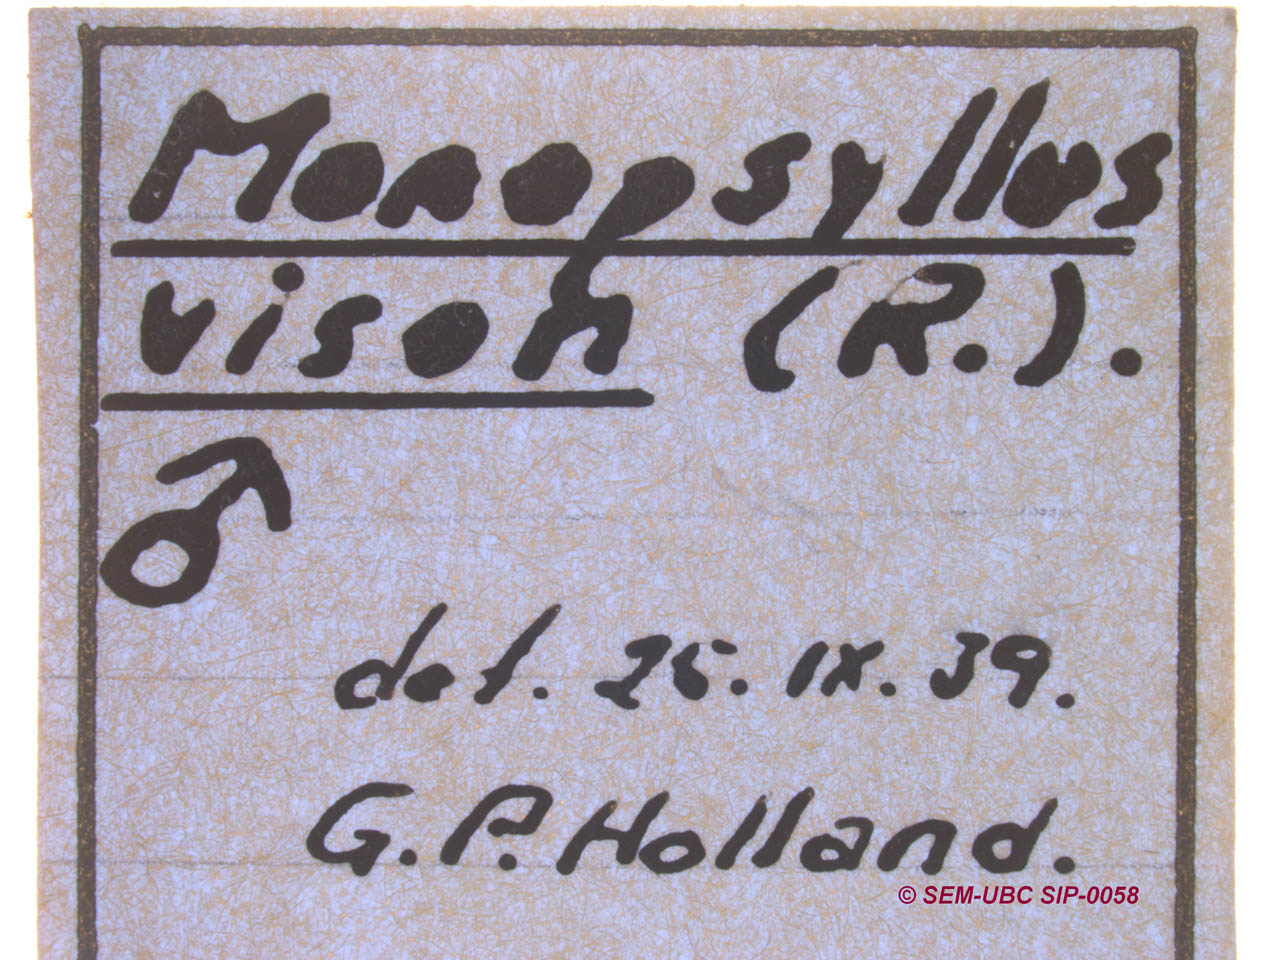 Monopsyllus
vison (R.).
♂
det. 25. IX. 39.
G. P. Holland.
© SEM-UBC SIP-0058